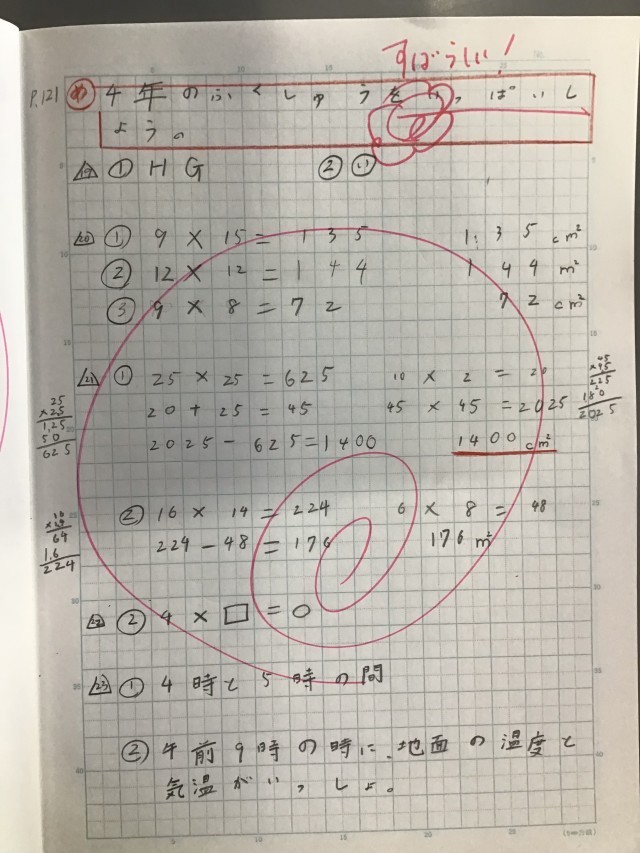 すばらしい!
P.121 め 4年のふくしゅうをいっぱいし
ようの
19 ① H G ② い
20 ① 9 × 15 = 135 135 cm²
② 12 × 12 = 144 144 m²
③ 9 × 8 = 72 72 cm²
21 ① 25 × 25 = 625 10 × 2 = 20
20 + 25 = 45 45 × 45 = 2025
2025 - 625 = 1400 1400 cm²
25
×25
125
50
625
45
×45
225
180
2025
② 16 × 14 = 224 6 × 8 = 48
224 - 48 = 176 176 m²
16
×14
64
16
224
22 ② 4 × □ = ○
23 ① 4時と5時の間
② 午前9時の時に、地面の温度と
気温がいっしょ。